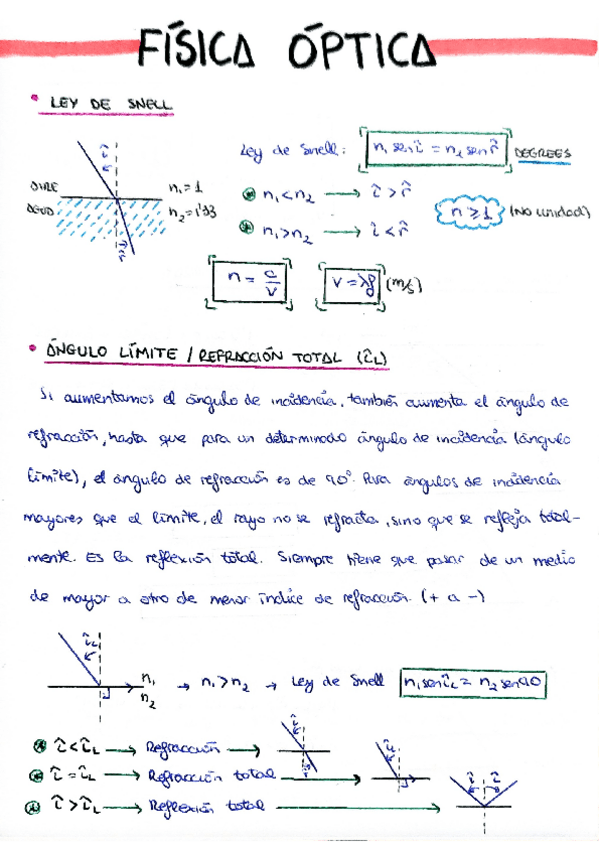 FÍSICA ÓPTICA
• LEY DE SNELL
Ley de Snell: n₁ sen î = n₂ sen r̂ DEGREES
î
AIRE
AGUA
r̂
n₁ = 1
n₂ = 1'33
n₁ < n₂ → î > r̂
n₁ > n₂ → î < r̂
n ≥ 1 (No unidad)
n = c/v
v = λf (m/s)
• ÁNGULO LÍMITE / REFRACCIÓN TOTAL (îL)
Si aumentamos el ángulo de incidencia, también aumenta el ángulo de
refracción, hasta que para un determinado ángulo de incidencia (ángulo
límite), el ángulo de refracción es de 90°. Para ángulos de incidencia
mayores que el límite, el rayo no se refracta, sino que se refleja total-
mente. Es la reflexión total. Siempre tiene que pasar de un medio
de mayor a otro de menor índice de refracción. (+ a -)
îL
n₁
n₂
→ n₁ > n₂ → Ley de Snell n₁ sen îL = n₂ sen 90
î < îL → Refracción → î r̂
î = îL → Refracción total → îL
î > îL → Reflexión total → î î